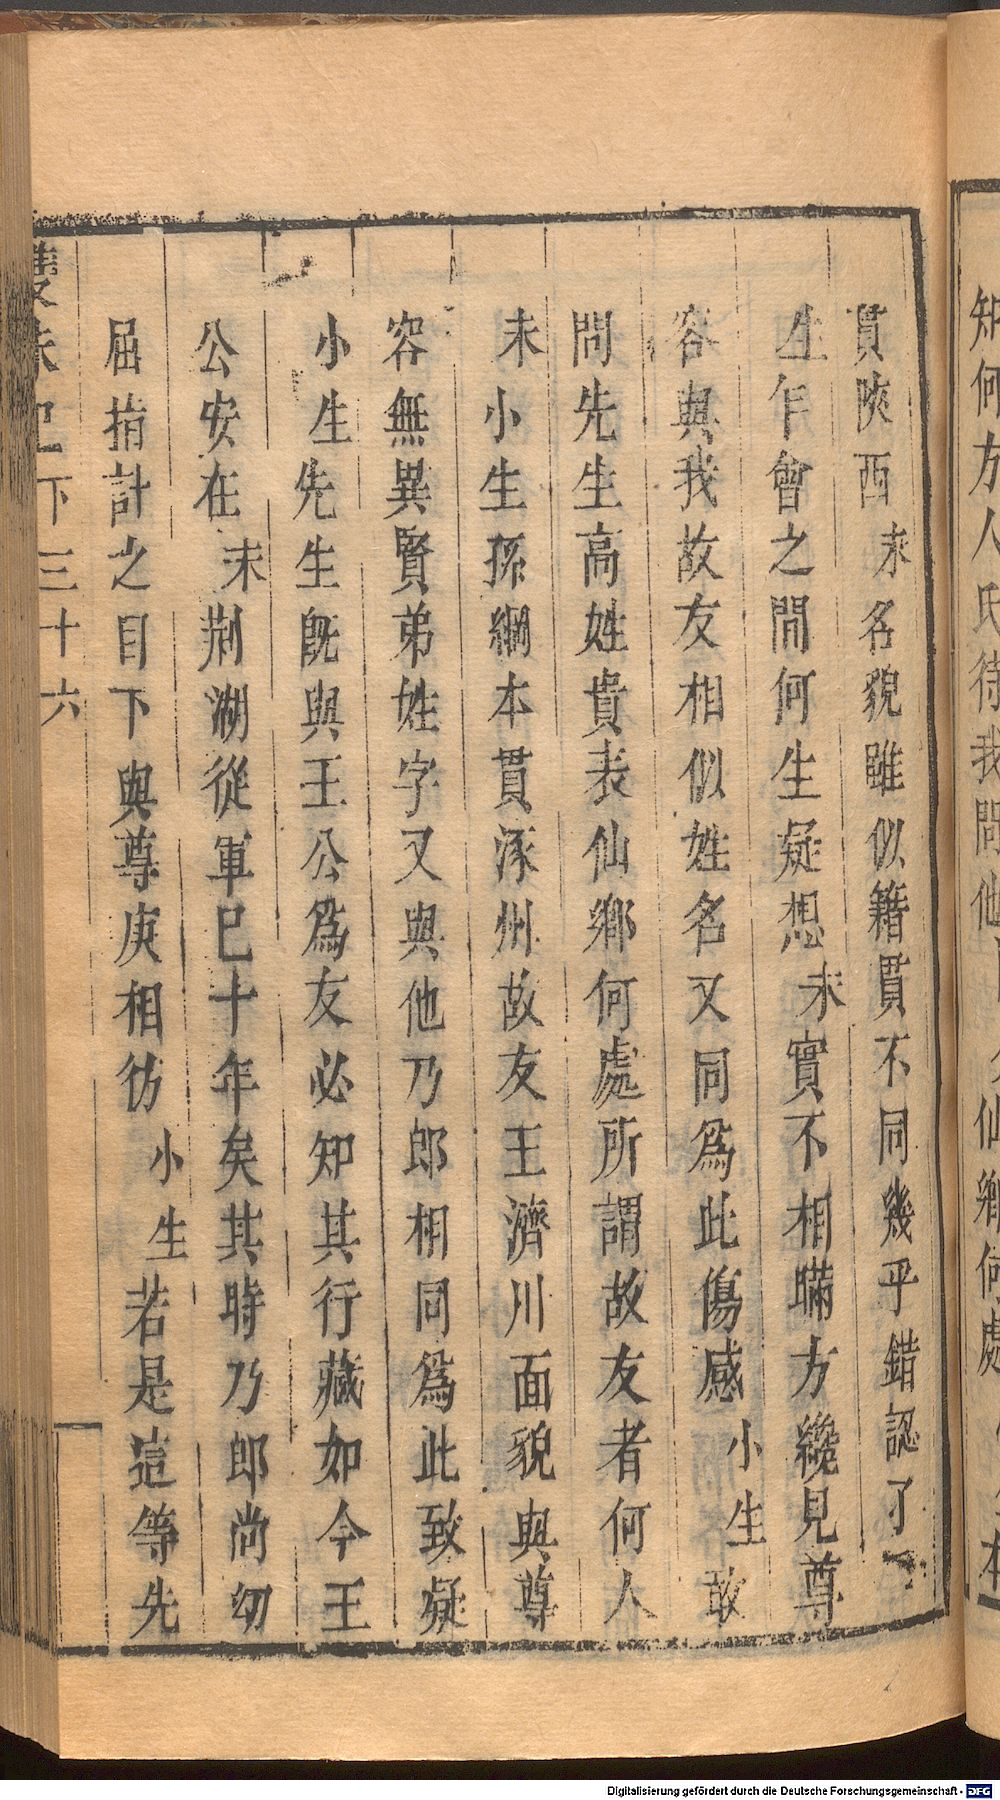 貫陝西末名貌雖似籍貫不同幾乎錯認了
生乍會之間何生疑想末實不相瞞方纔見尊
容與我故友相似姓名又同爲此傷感小生敢
問先生高姓貴表仙鄉何處所謂故友者何人
末小生孫綱本貫涿州故友王濟川面貌與尊
容無異賢弟姓字又與他乃郎相同爲此致疑
小生先生旣與王公爲友必知其行藏如今王
公安在末荆湖從軍已十年矣其時乃郎尚幼
屈指計之目下與尊庚相彷小生若是這等先
雙珠記下三十六
知何方人氏待我問他
仙鄉何處
本
Digitalisierung gefördert durch die Deutsche Forschungsgemeinschaft - DFG